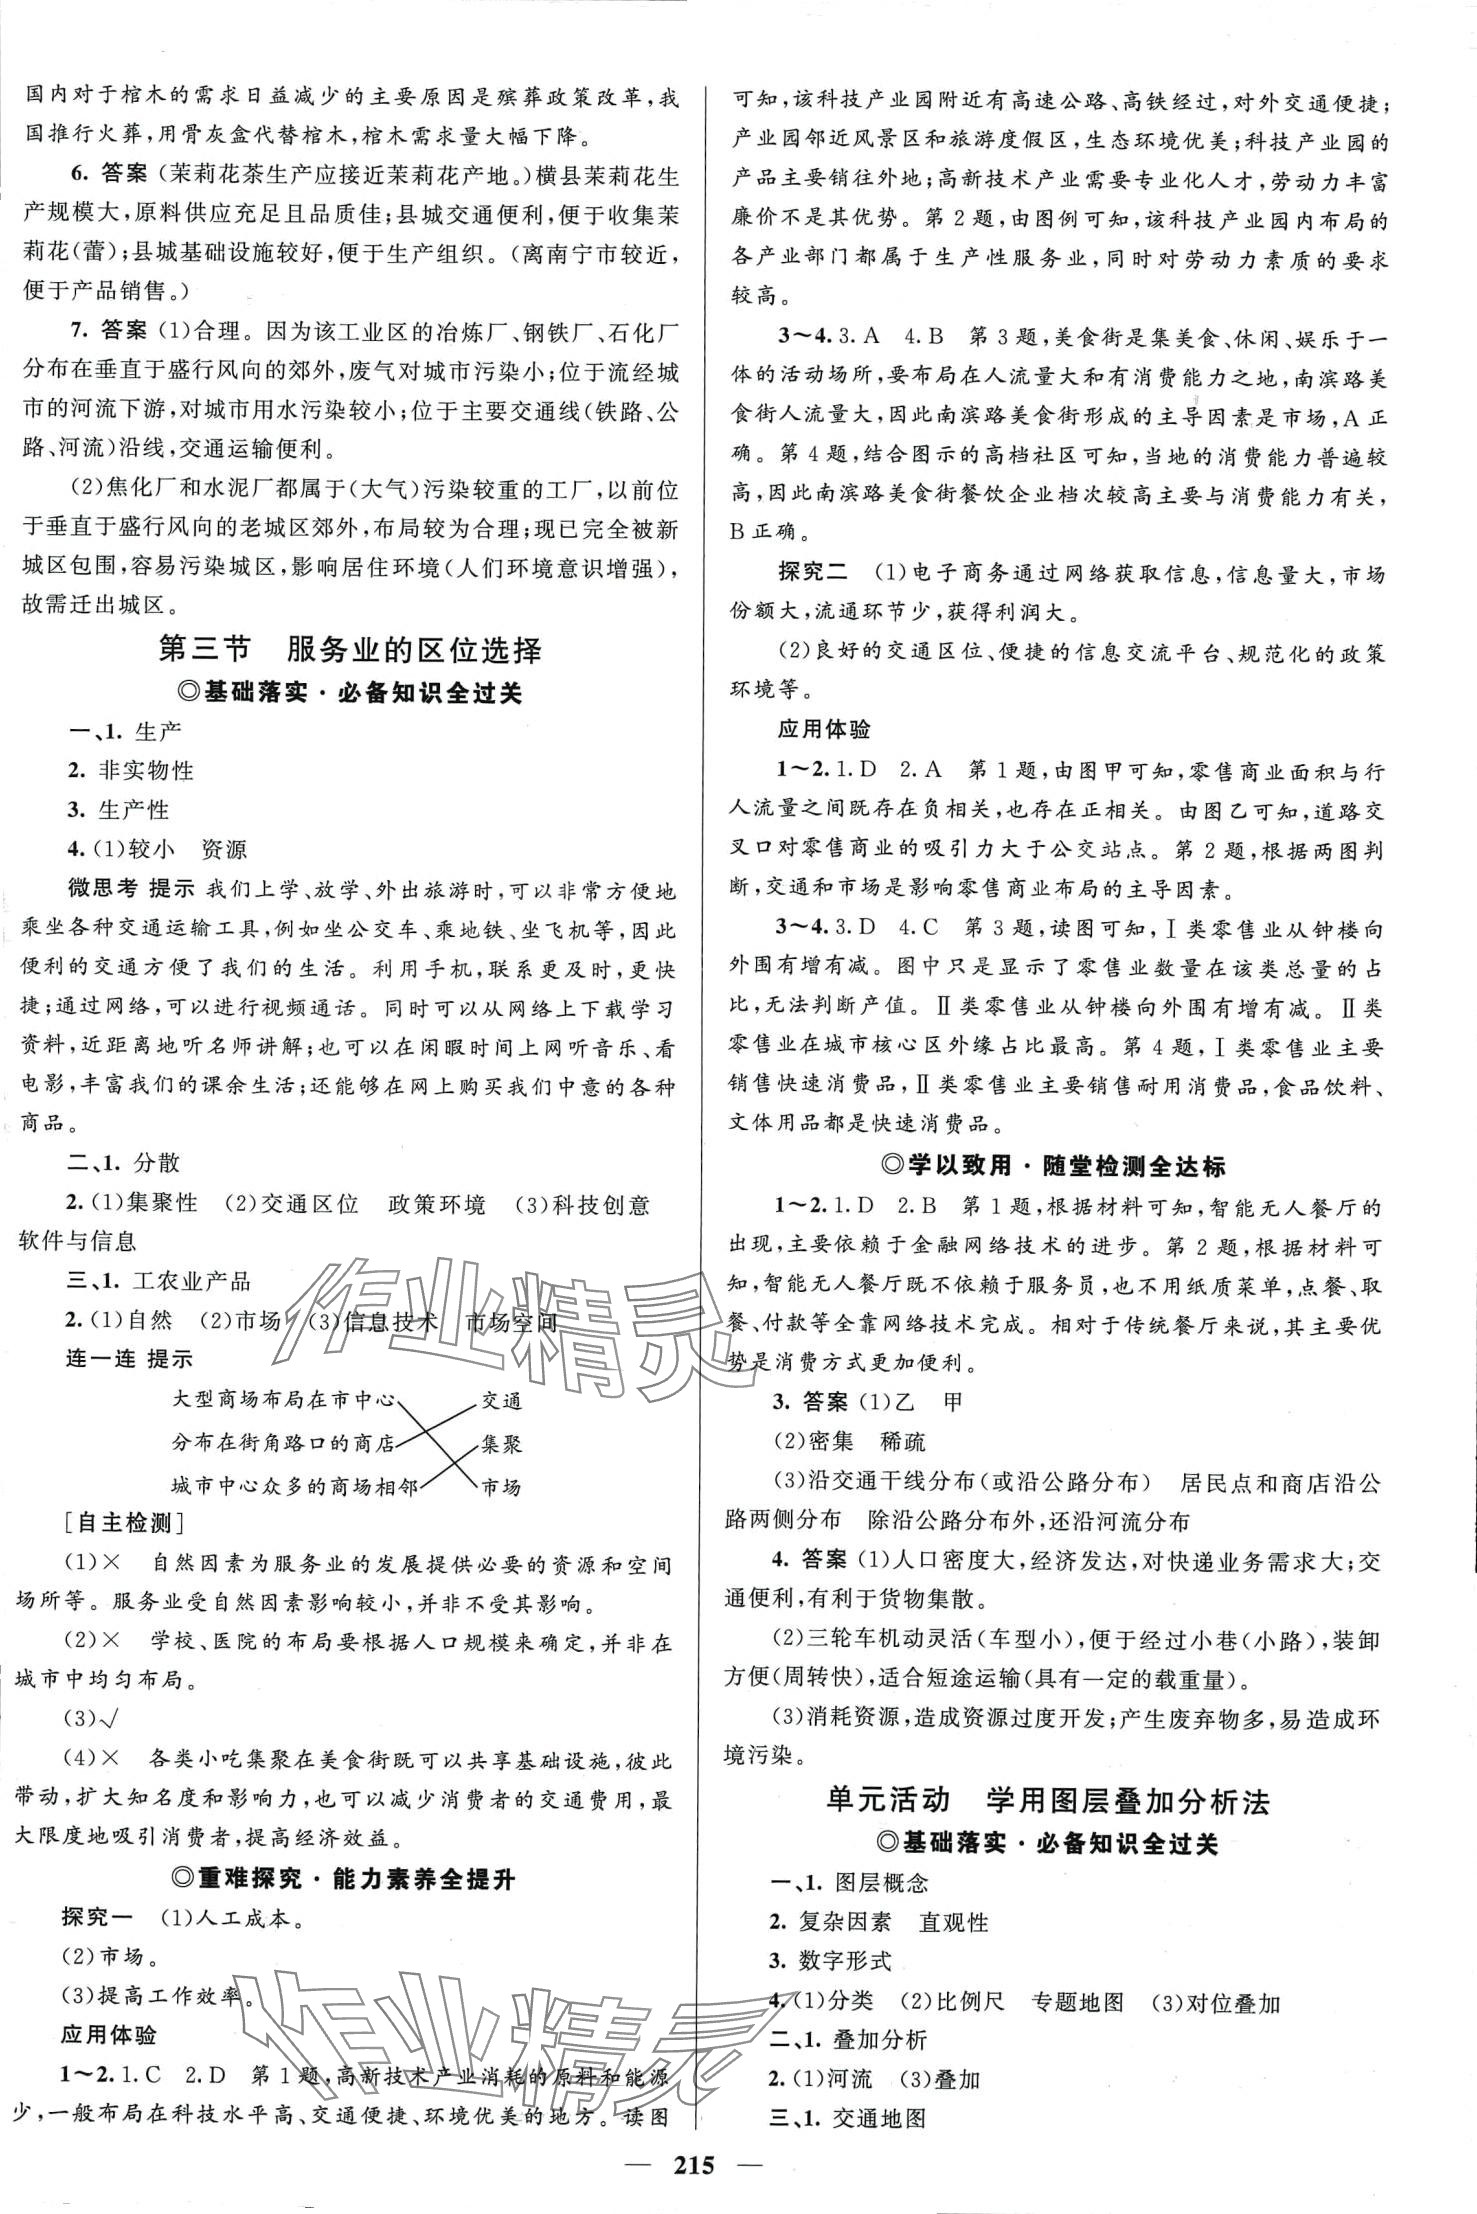 国内对于棺木的需求日益减少的主要原因是殡葬政策改革,我
国推行火葬,用骨灰盒代替棺木,棺木需求量大幅下降。
6. 答案 (茉莉花茶生产应接近茉莉花产地。)横县茉莉花生
产规模大,原料供应充足且品质佳;县城交通便利,便于收集茉
莉花(蕾);县城基础设施较好,便于生产组织。(离南宁市较近,
便于产品销售。)
7. 答案 (1)合理。因为该工业区的冶炼厂、钢铁厂、石化厂
分布在垂直于盛行风向的郊外,废气对城市污染小;位于流经城
市的河流下游,对城市用水污染较小;位于主要交通线(铁路、公
路、河流)沿线,交通运输便利。
(2)焦化厂和水泥厂都属于(大气)污染较重的工厂,以前位
于垂直于盛行风向的老城区郊外,布局较为合理;现已完全被新
城区包围,容易污染城区,影响居住环境(人们环境意识增强),
故需迁出城区。
第三节 服务业的区位选择
◎基础落实·必备知识全过关
一、1. 生产
2. 非实物性
3. 生产性
4. (1)较小 资源
微思考 提示 我们上学、放学、外出旅游时,可以非常方便地
乘坐各种交通运输工具,例如坐公交车、乘地铁、坐飞机等,因此
便利的交通方便了我们的生活。利用手机,联系更及时,更快
捷;通过网络,可以进行视频通话。同时可以从网络上下载学习
资料,近距离地听名师讲解;也可以在闲暇时间上网听音乐、看
电影,丰富我们的课余生活;还能够在网上购买我们中意的各种
商品。
二、1. 分散
2. (1)集聚性 (2)交通区位 政策环境 (3)科技创意
软件与信息
三、1. 工农业产品
2. (1)自然 (2)市场 (3)信息技术 市场空间
连一连 提示
大型商场布局在市中心 交通
分布在街角路口的商店 集聚
城市中心众多的商场相邻 市场
[自主检测]
(1)× 自然因素为服务业的发展提供必要的资源和空间
场所等。服务业受自然因素影响较小,并非不受其影响。
(2)× 学校、医院的布局要根据人口规模来确定,并非在
城市中均匀布局。
(3)√
(4)× 各类小吃集聚在美食街既可以共享基础设施,彼此
带动,扩大知名度和影响力,也可以减少消费者的交通费用,最
大限度地吸引消费者,提高经济效益。
◎重难探究·能力素养全提升
探究一 (1)人工成本。
(2)市场。
(3)提高工作效率。
应用体验
1～2. 1. C 2. D 第1题,高新技术产业消耗的原料和能源
少,一般布局在科技水平高、交通便捷、环境优美的地方。读图
可知,该科技产业园附近有高速公路、高铁经过,对外交通便捷;
产业园邻近风景区和旅游度假区,生态环境优美;科技产业园的
产品主要销往外地;高新技术产业需要专业化人才,劳动力丰富
廉价不是其优势。第2题,由图例可知,该科技产业园内布局的
各产业部门都属于生产性服务业,同时对劳动力素质的要求
较高。
3～4. 3. A 4. B 第3题,美食街是集美食、休闲、娱乐于一
体的活动场所,要布局在人流量大和有消费能力之地,南滨路美
食街人流量大,因此南滨路美食街形成的主导因素是市场,A正
确。第4题,结合图示的高档社区可知,当地的消费能力普遍较
高,因此南滨路美食街餐饮企业档次较高主要与消费能力有关,
B正确。
探究二 (1)电子商务通过网络获取信息,信息量大,市场
份额大,流通环节少,获得利润大。
(2)良好的交通区位、便捷的信息交流平台、规范化的政策
环境等。
应用体验
1～2. 1. D 2. A 第1题,由图甲可知,零售商业面积与行
人流量之间既存在负相关,也存在正相关。由图乙可知,道路交
叉口对零售商业的吸引力大于公交站点。第2题,根据两图判
断,交通和市场是影响零售商业布局的主导因素。
3～4. 3. D 4. C 第3题,读图可知,Ⅰ类零售业从钟楼向
外围有增有减。图中只是显示了零售业数量在该类总量的占
比,无法判断产值。Ⅱ类零售业从钟楼向外围有增有减。Ⅱ类
零售业在城市核心区外缘占比最高。第4题,Ⅰ类零售业主要
销售快速消费品,Ⅱ类零售业主要销售耐用消费品,食品饮料、
文体用品都是快速消费品。
◎学以致用·随堂检测全达标
1～2. 1. D 2. B 第1题,根据材料可知,智能无人餐厅的
出现,主要依赖于金融网络技术的进步。第2题,根据材料可
知,智能无人餐厅既不依赖于服务员,也不用纸质菜单,点餐、取
餐、付款等全靠网络技术完成。相对于传统餐厅来说,其主要优
势是消费方式更加便利。
3. 答案 (1)乙 甲
(2)密集 稀疏
(3)沿交通干线分布(或沿公路分布) 居民点和商店沿公
路两侧分布 除沿公路分布外,还沿河流分布
4. 答案 (1)人口密度大,经济发达,对快递业务需求大;交
通便利,有利于货物集散。
(2)三轮车机动灵活(车型小),便于经过小巷(小路),装卸
方便(周转快),适合短途运输(具有一定的载重量)。
(3)消耗资源,造成资源过度开发;产生废弃物多,易造成环
境污染。
单元活动 学用图层叠加分析法
◎基础落实·必备知识全过关
一、1. 图层概念
2. 复杂因素 直观性
3. 数字形式
4. (1)分类 (2)比例尺 专题地图 (3)对位叠加
二、1. 叠加分析
2. (1)河流 (3)叠加
三、1. 交通地图
作业精灵
作业精灵
— 215 —